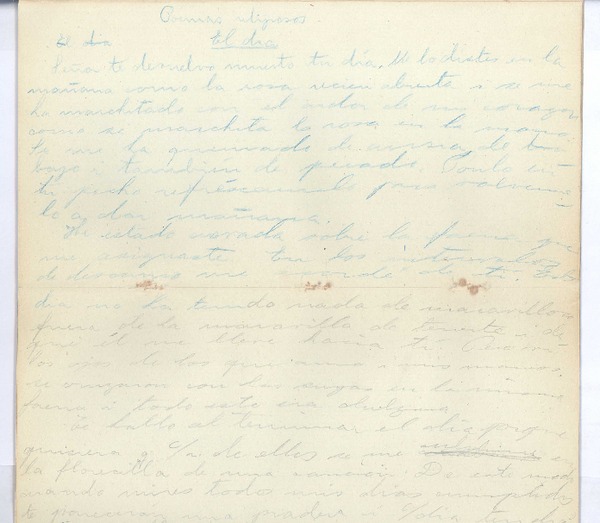 Poemas religiosos
El día El día
Señor te devuelvo muerto tu día. Me lo distes en la
mañana como la rosa recien abierta i se me
ha marchitado con el ardor de mi corazon
como se marchita la rosa en la mano.
Se me ha quemado de ansia, de tra-
bajo i tambien de pecado. Ponlo en
tu pecho refrescamelo para volverme-
lo a dar mañana.
He estado corvada sobre la faena que
me asignaste. En los intervalos
de descanso me acordé de ti. Este
dia no ha tenido nada de maravilloso
fuera de la maravilla de tenerte i de
que él me lleve hacia ti.
los ojos de los que amo i mis manos
se cruzaron con las suyas en la misma
faena i todo esto era
Te hablo al terminar el día porque
quisiera q c/u de ellos se me en
la florecilla de una cancion. De este modo
cuando mires todos mis dias cumplidos
te pareceran una pradera i